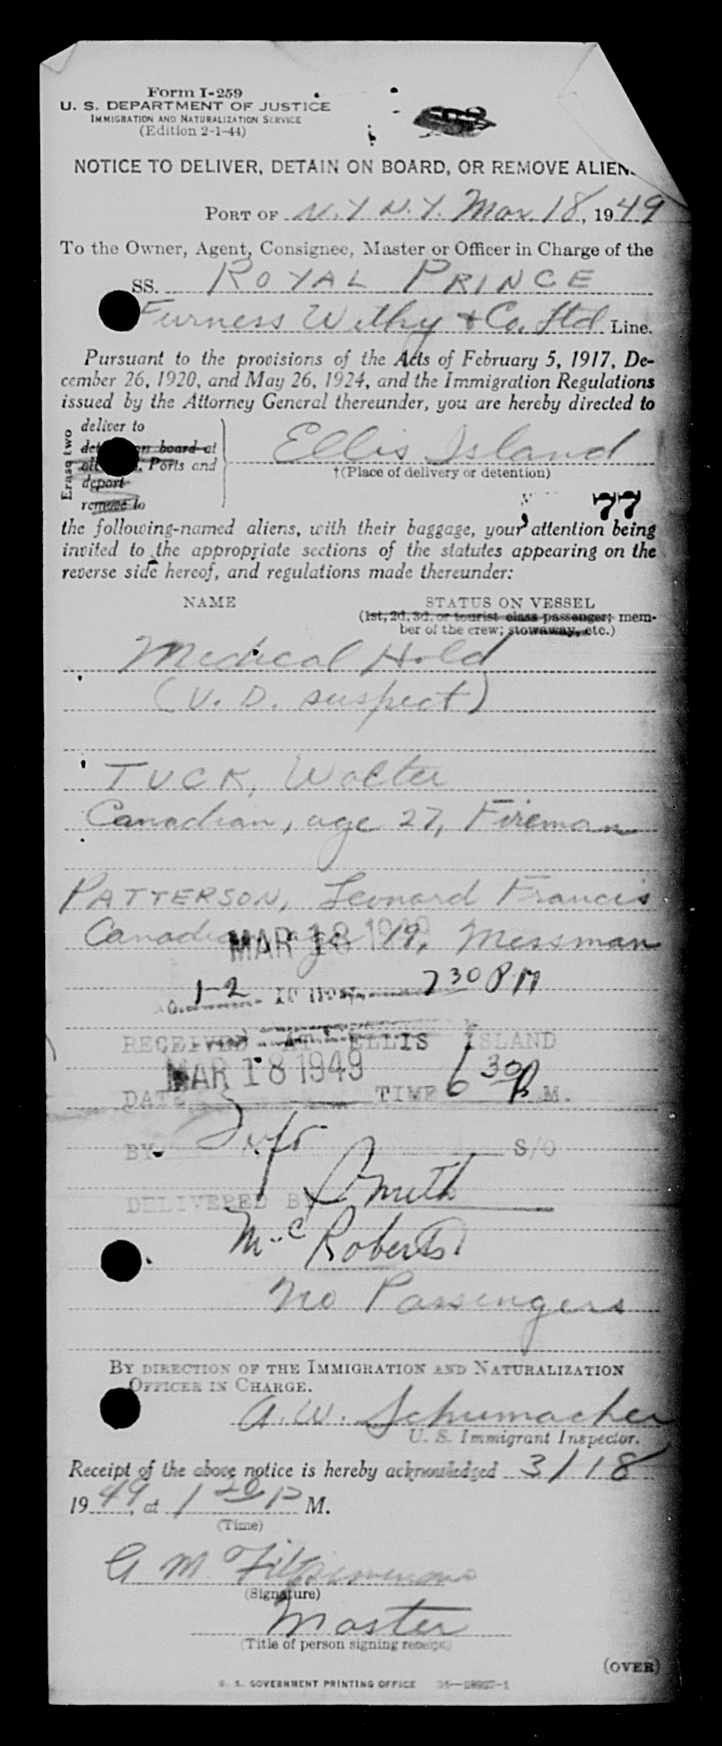 Form I-259
U. S. DEPARTMENT OF JUSTICE
IMMIGRATION AND NATURALIZATION SERVICE
(Edition 2-1-44)
NOTICE TO DELIVER, DETAIN ON BOARD, OR REMOVE ALIEN
PORT OF N.Y N.Y. Mar 18, 1949
To the Owner, Agent, Consignee, Master or Officer in Charge of the
SS. ROYAL PRINCE
Furness Withy & Co. Ltd Line.
Pursuant to the provisions of the Acts of February 5, 1917, De-
cember 26, 1920, and May 26, 1924, and the Immigration Regulations
issued by the Attorney General thereunder, you are hereby directed to
Erase two
deliver to
on board at
Ports and
deport
remove to
Ellis Island
†(Place of delivery or detention)
77
the following-named aliens, with their baggage, your attention being
invited to the appropriate sections of the statutes appearing on the
reverse side hereof, and regulations made thereunder:
NAME STATUS ON VESSEL
(1st, 2d, 3d, or tourist class passenger; mem-
ber of the crew; stowaway, etc.)
Medical Hold
(V. D. suspect)
TUCK, Walter
Canadian, age 27, Fireman
PATTERSON, Leonard Francis
Canadian age 19, Messman
MAR 18 1949
1-2 730 PM
RECEIVED AT ELLIS ISLAND
MAR 18 1949
DATE TIME 6 30 P M.
BY S/O
DELIVERED BY Smith
McRoberts
No Passengers
BY DIRECTION OF THE IMMIGRATION AND NATURALIZATION
OFFICER IN CHARGE.
A. W. Schumacher
U. S. Immigrant Inspector.
Receipt of the above notice is hereby acknowledged 3/18
1949, at 1 20 P M.
(Time)
G M Fitzsimmons
(Signature)
Master
(Title of person signing receipt)
(OVER)
U. S. GOVERNMENT PRINTING OFFICE